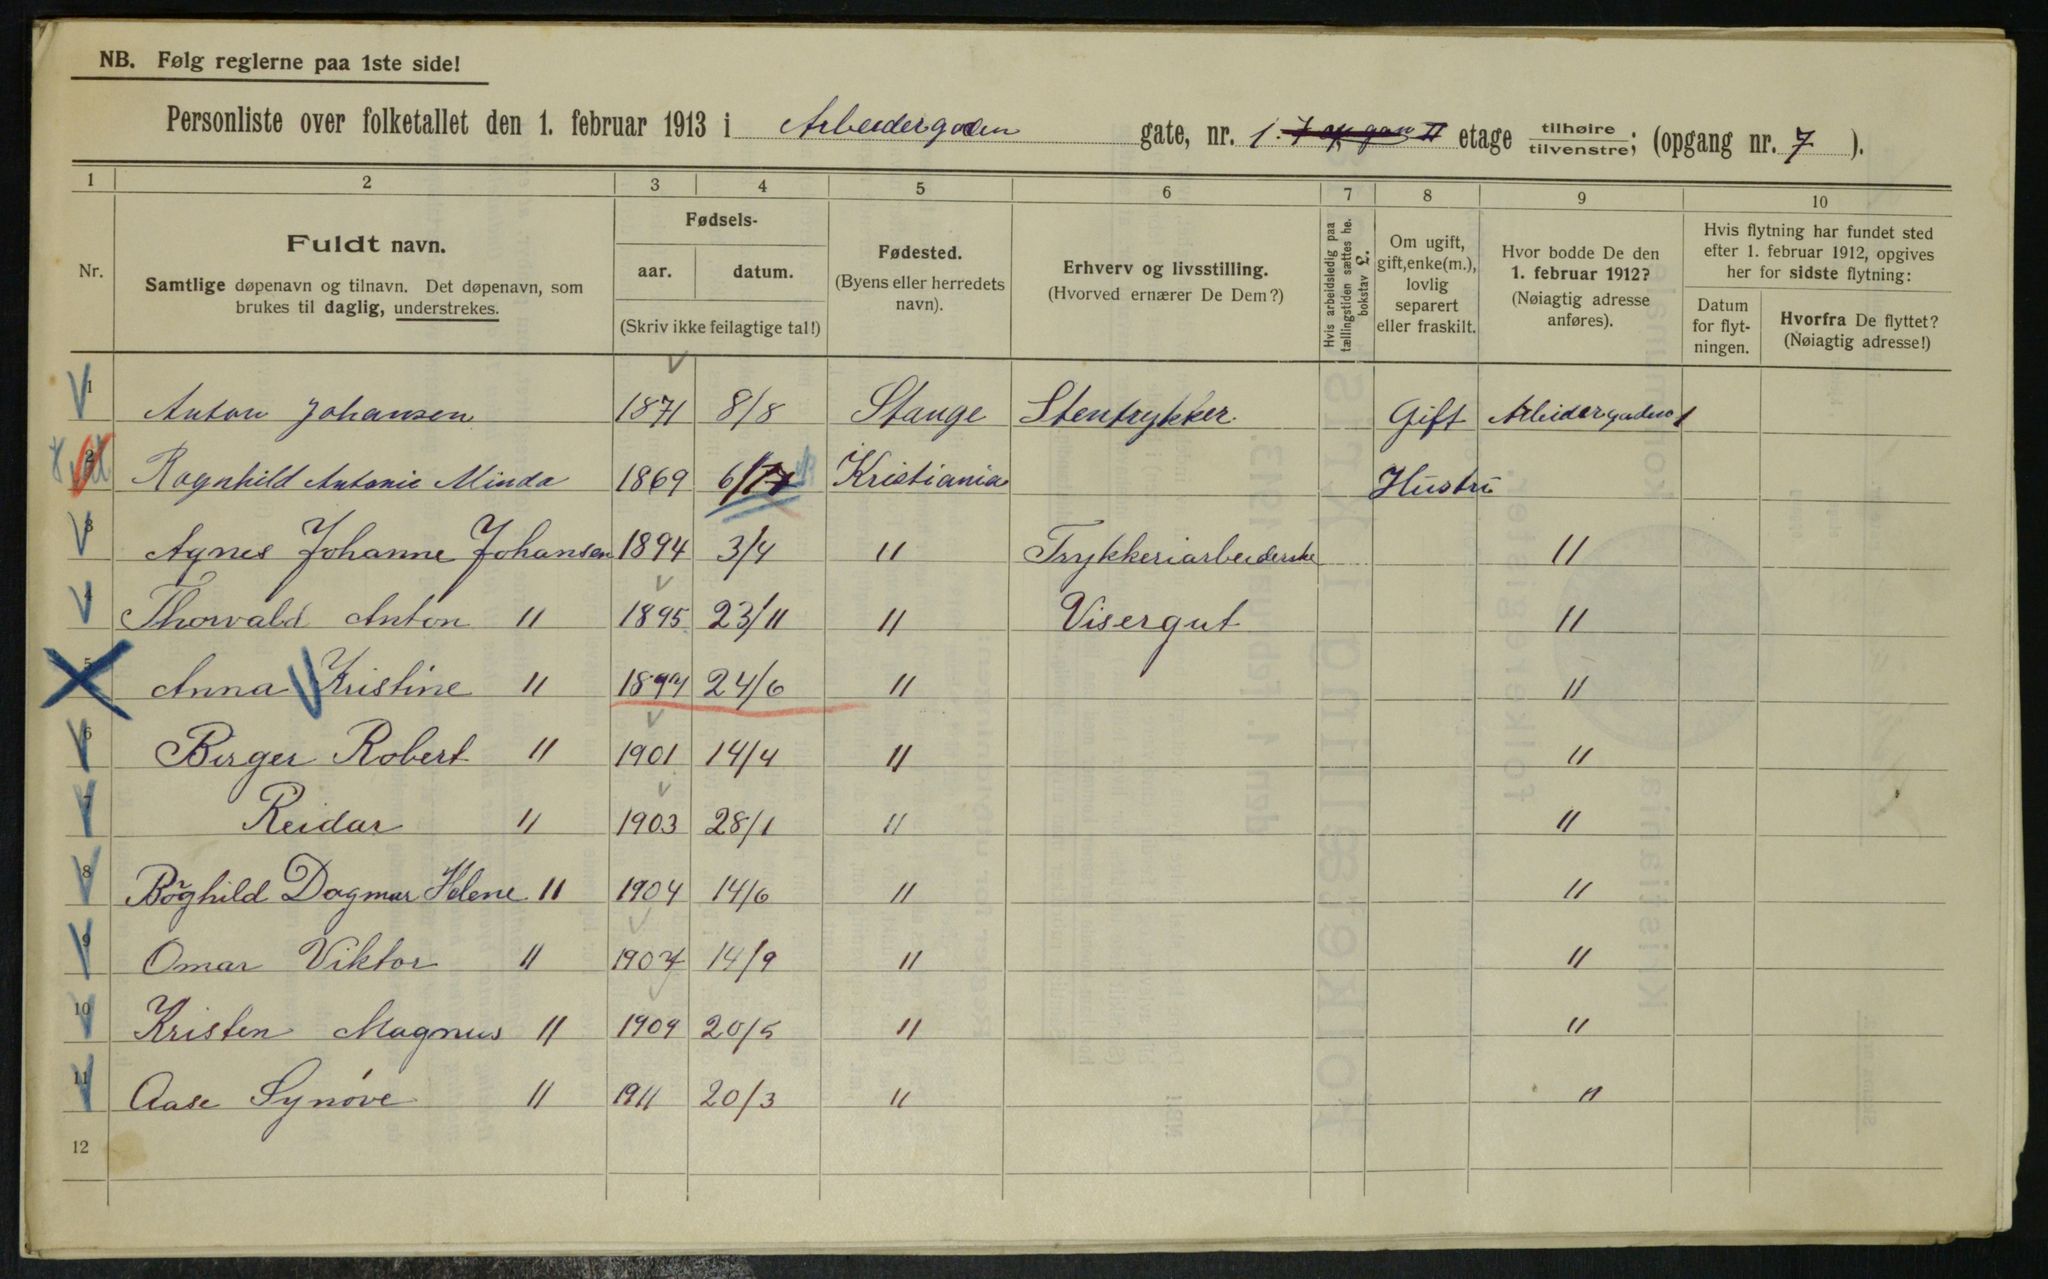 NB. Følg reglerne paa 1ste side!
Personliste over folketallet den 1. februar 1913 i Arbeidergaden gate, nr. 1. etage tilhøire tilvenstre; (opgang nr. 7 ).
1 2 3 4 5 6 7 8 9 10
Nr.
Fuldt navn.
Samtlige døpenavn og tilnavn. Det døpenavn, som
brukes til daglig, understrekes.
Fødsels-
aar. datum.
(Skriv ikke feilagtige tal!)
Fødested.
(Byens eller herredets
navn).
Erhverv og livsstilling.
(Hvorved ernærer De Dem?)
Hvis arbeidsledig paa
tællingstiden sættes her
bokstav
Om ugift,
gift, enke(m.),
lovlig
separert
eller fraskilt.
Hvor bodde De den
1. februar 1912?
(Nøiagtig adresse
anføres).
Hvis flytning har fundet sted
efter 1. februar 1912, opgives
her for sidste flytning:
Datum
for flyt-
ningen.
Hvorfra De flyttet?
(Nøiagtig adresse!)
1 Anton Johansen 1871 8/8 Stange Stentrykker. Gift Arbeidergaden 1
2 Ragnhild Antonie Minda 1869 Kristiania Hustru
3 Agnes Johanne Johansen 1894 3/4 " Trykkeriarbeiderske "
4 Thorvald Anton " 1895 23/11 " Visergut "
5 Anna Kristine " 1897 24/6 " "
6 Birger Robert " 1901 14/4 " "
7 Reidar " 1903 28/1 " "
8 Borghild Dagmar Helene " 1904 14/6 " "
9 Omar Viktor " 1907 14/9 " "
10 Kristen Magnus " 1909 20/5 " "
11 Aase Synøve " 1911 20/3 " "
12